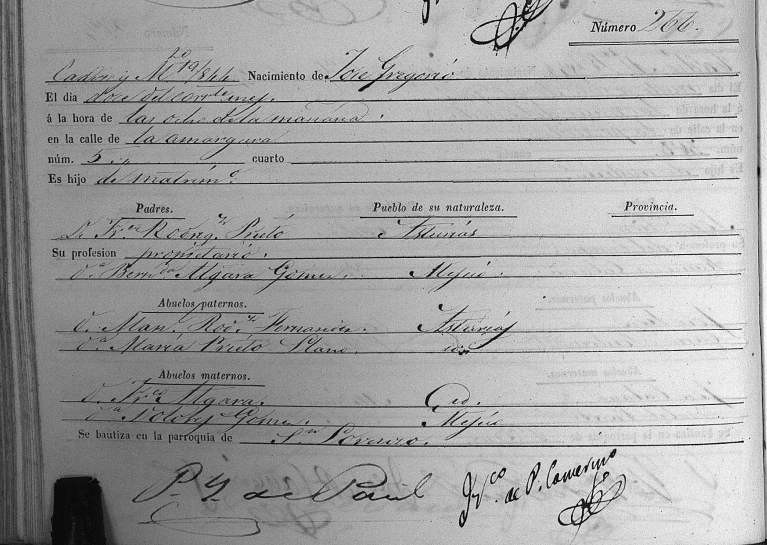 Número 266.
Cadiz y M.zo 19/844 Nacimiento de Jose Gregorio
El dia doce del corrte mes.
á la hora de las ocho de la mañana.
en la calle de la amargura
núm. 5 cuarto
Es hijo de matrimo.
Padres. Pueblo de su naturaleza. Provincia.
D. Fr.co Rodrig.z Prieto Asturias
Su profesion propietario.
D.a Algara Gomez. Mejico.
Abuelos paternos.
D. Man.l Rod.z Fernandez. Asturias
D.a Maria Prieto id.
Abuelos maternos.
D. Fr.co Algara.
D.a Gomez. Mejico
Se bautiza en la parroquia de Sn Lorenzo.
P. Y. de Paul Fr.co de P. Camerino